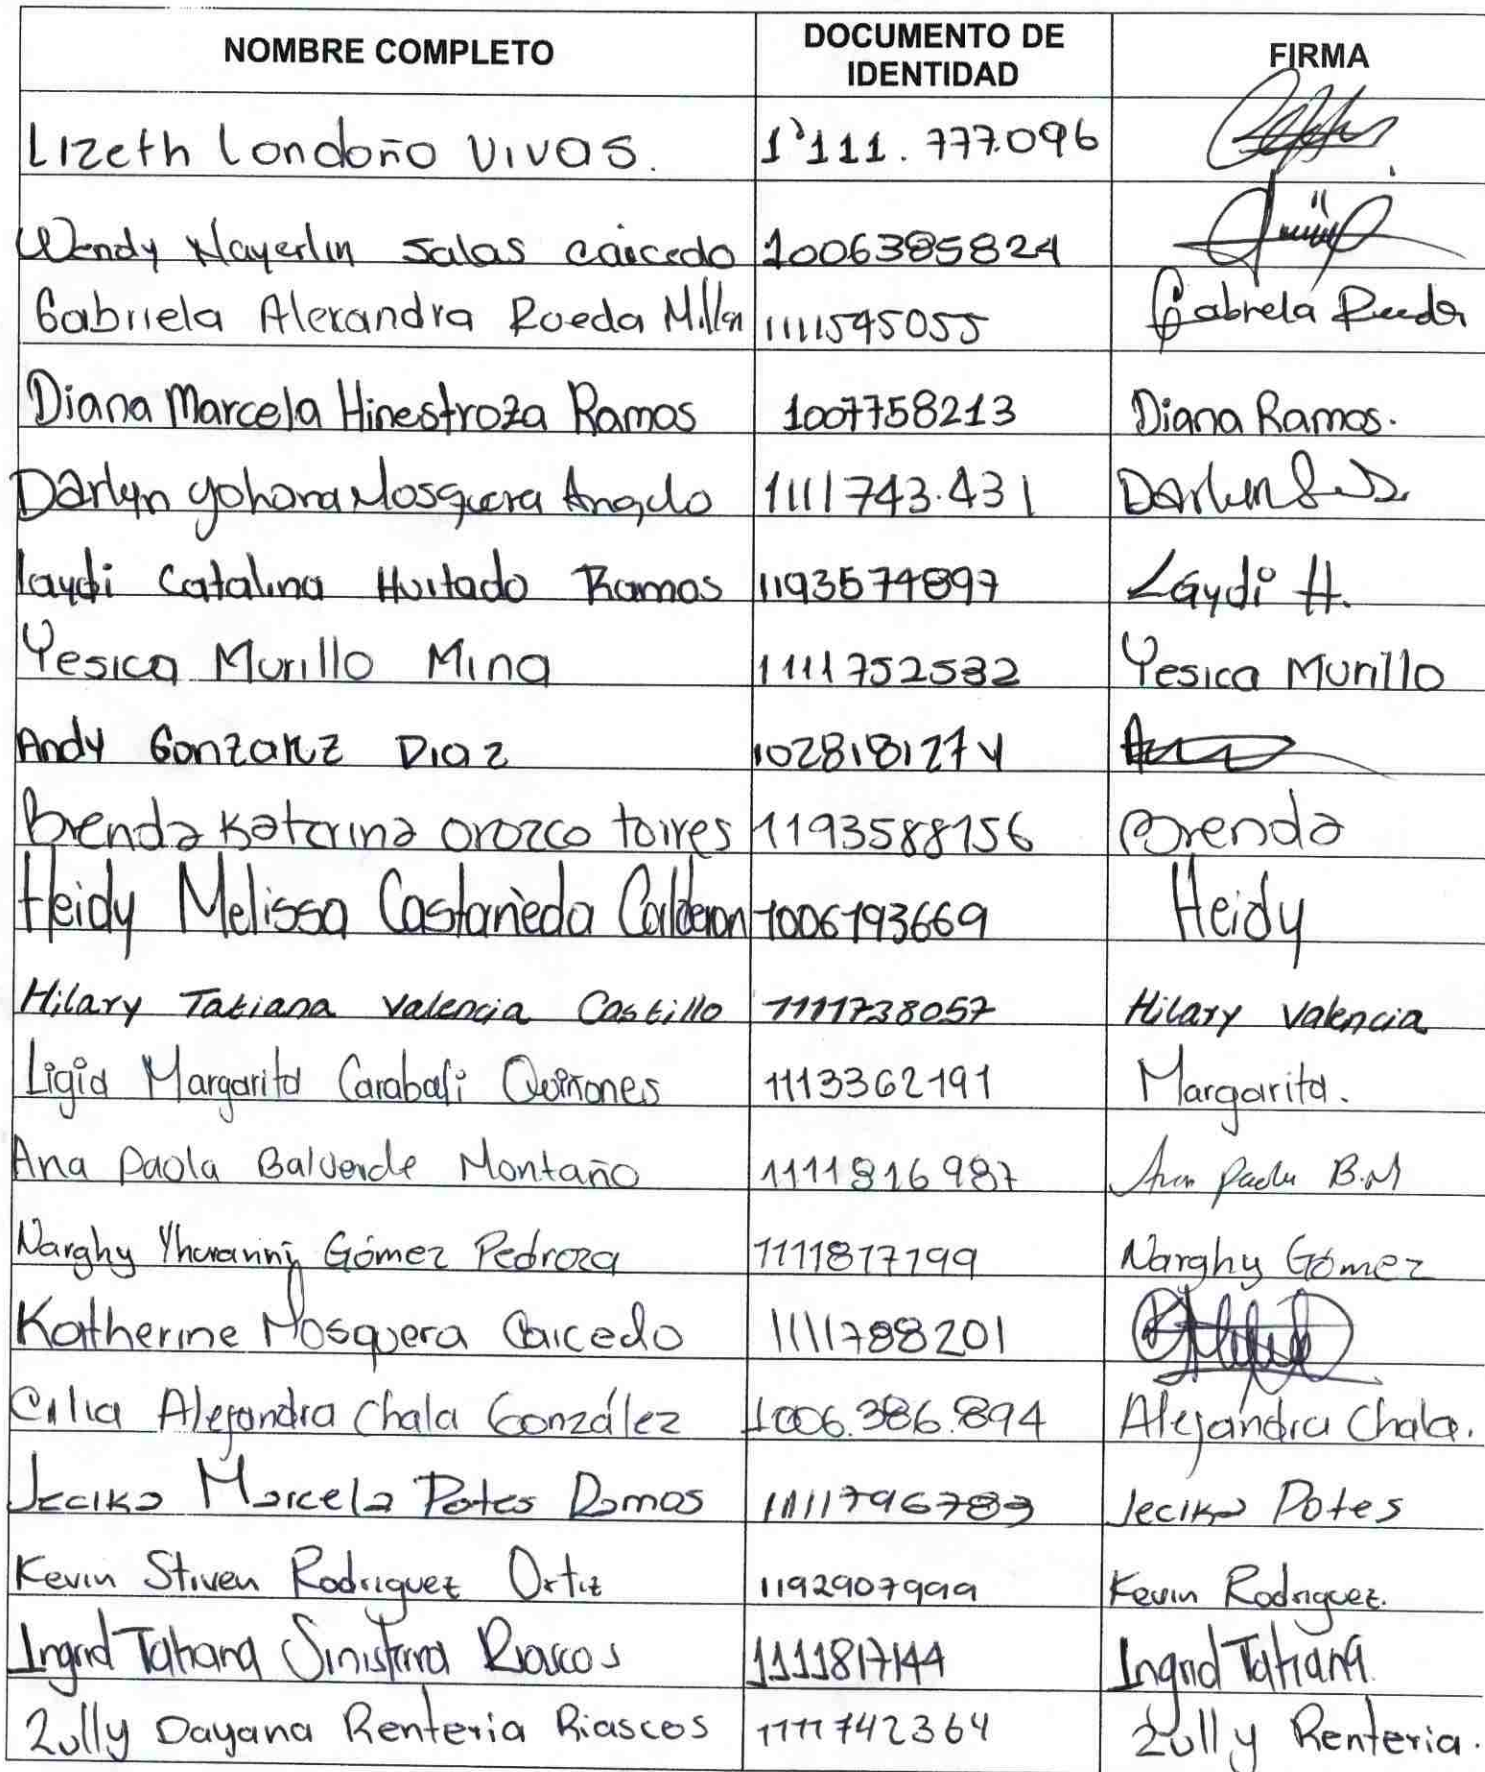 NOMBRE COMPLETO DOCUMENTO DE IDENTIDAD FIRMA
Lizeth Londoño Vivas. 1'111.777.096
Wendy Nayerlin Salas caicedo 1006385824
Gabriela Alexandra Rueda Millan 1111545055 Gabriela Rueda
Diana Marcela Hinestroza Ramos 1007758213 Diana Ramos.
Darlyn yohana Mosquera Angulo 1111743.431 Darlyn
laydi Catalina Hurtado Ramos 1193574897 Laydi H.
Yesica Murillo Mina 1111752532 Yesica Murillo
Andy Gonzalez Diaz 1028181274
Brenda Katerina orozco torres 1193588156 Brenda
Heidy Melissa Castañeda Calderon 1006193669 Heidy
Hilary Tatiana Valencia Castillo 1111738057 Hilary Valencia
Ligia Margarita Carabali Quiñones 1113362191 Margarita.
Ana Paola Balverde Montaño 1111816987 Ana Paola B.M
Narghy Yhuranni Gómez Pedroza 1111817199 Narghy Gómez
Katherine Mosquera Caicedo 1111788201
Cilia Alejandra Chala González 1006.386.894 Alejandra Chala.
Jecika Marcela Potes Ramos 1111796783 Jecika Potes
Kevin Stiven Rodriguez Ortiz 1192907999 Kevin Rodriguez.
Ingrid Tatiana Sinisterra Riascos 1111817144 Ingrid Tatiana.
Zully Dayana Renteria Riascos 1111742364 Zully Renteria.